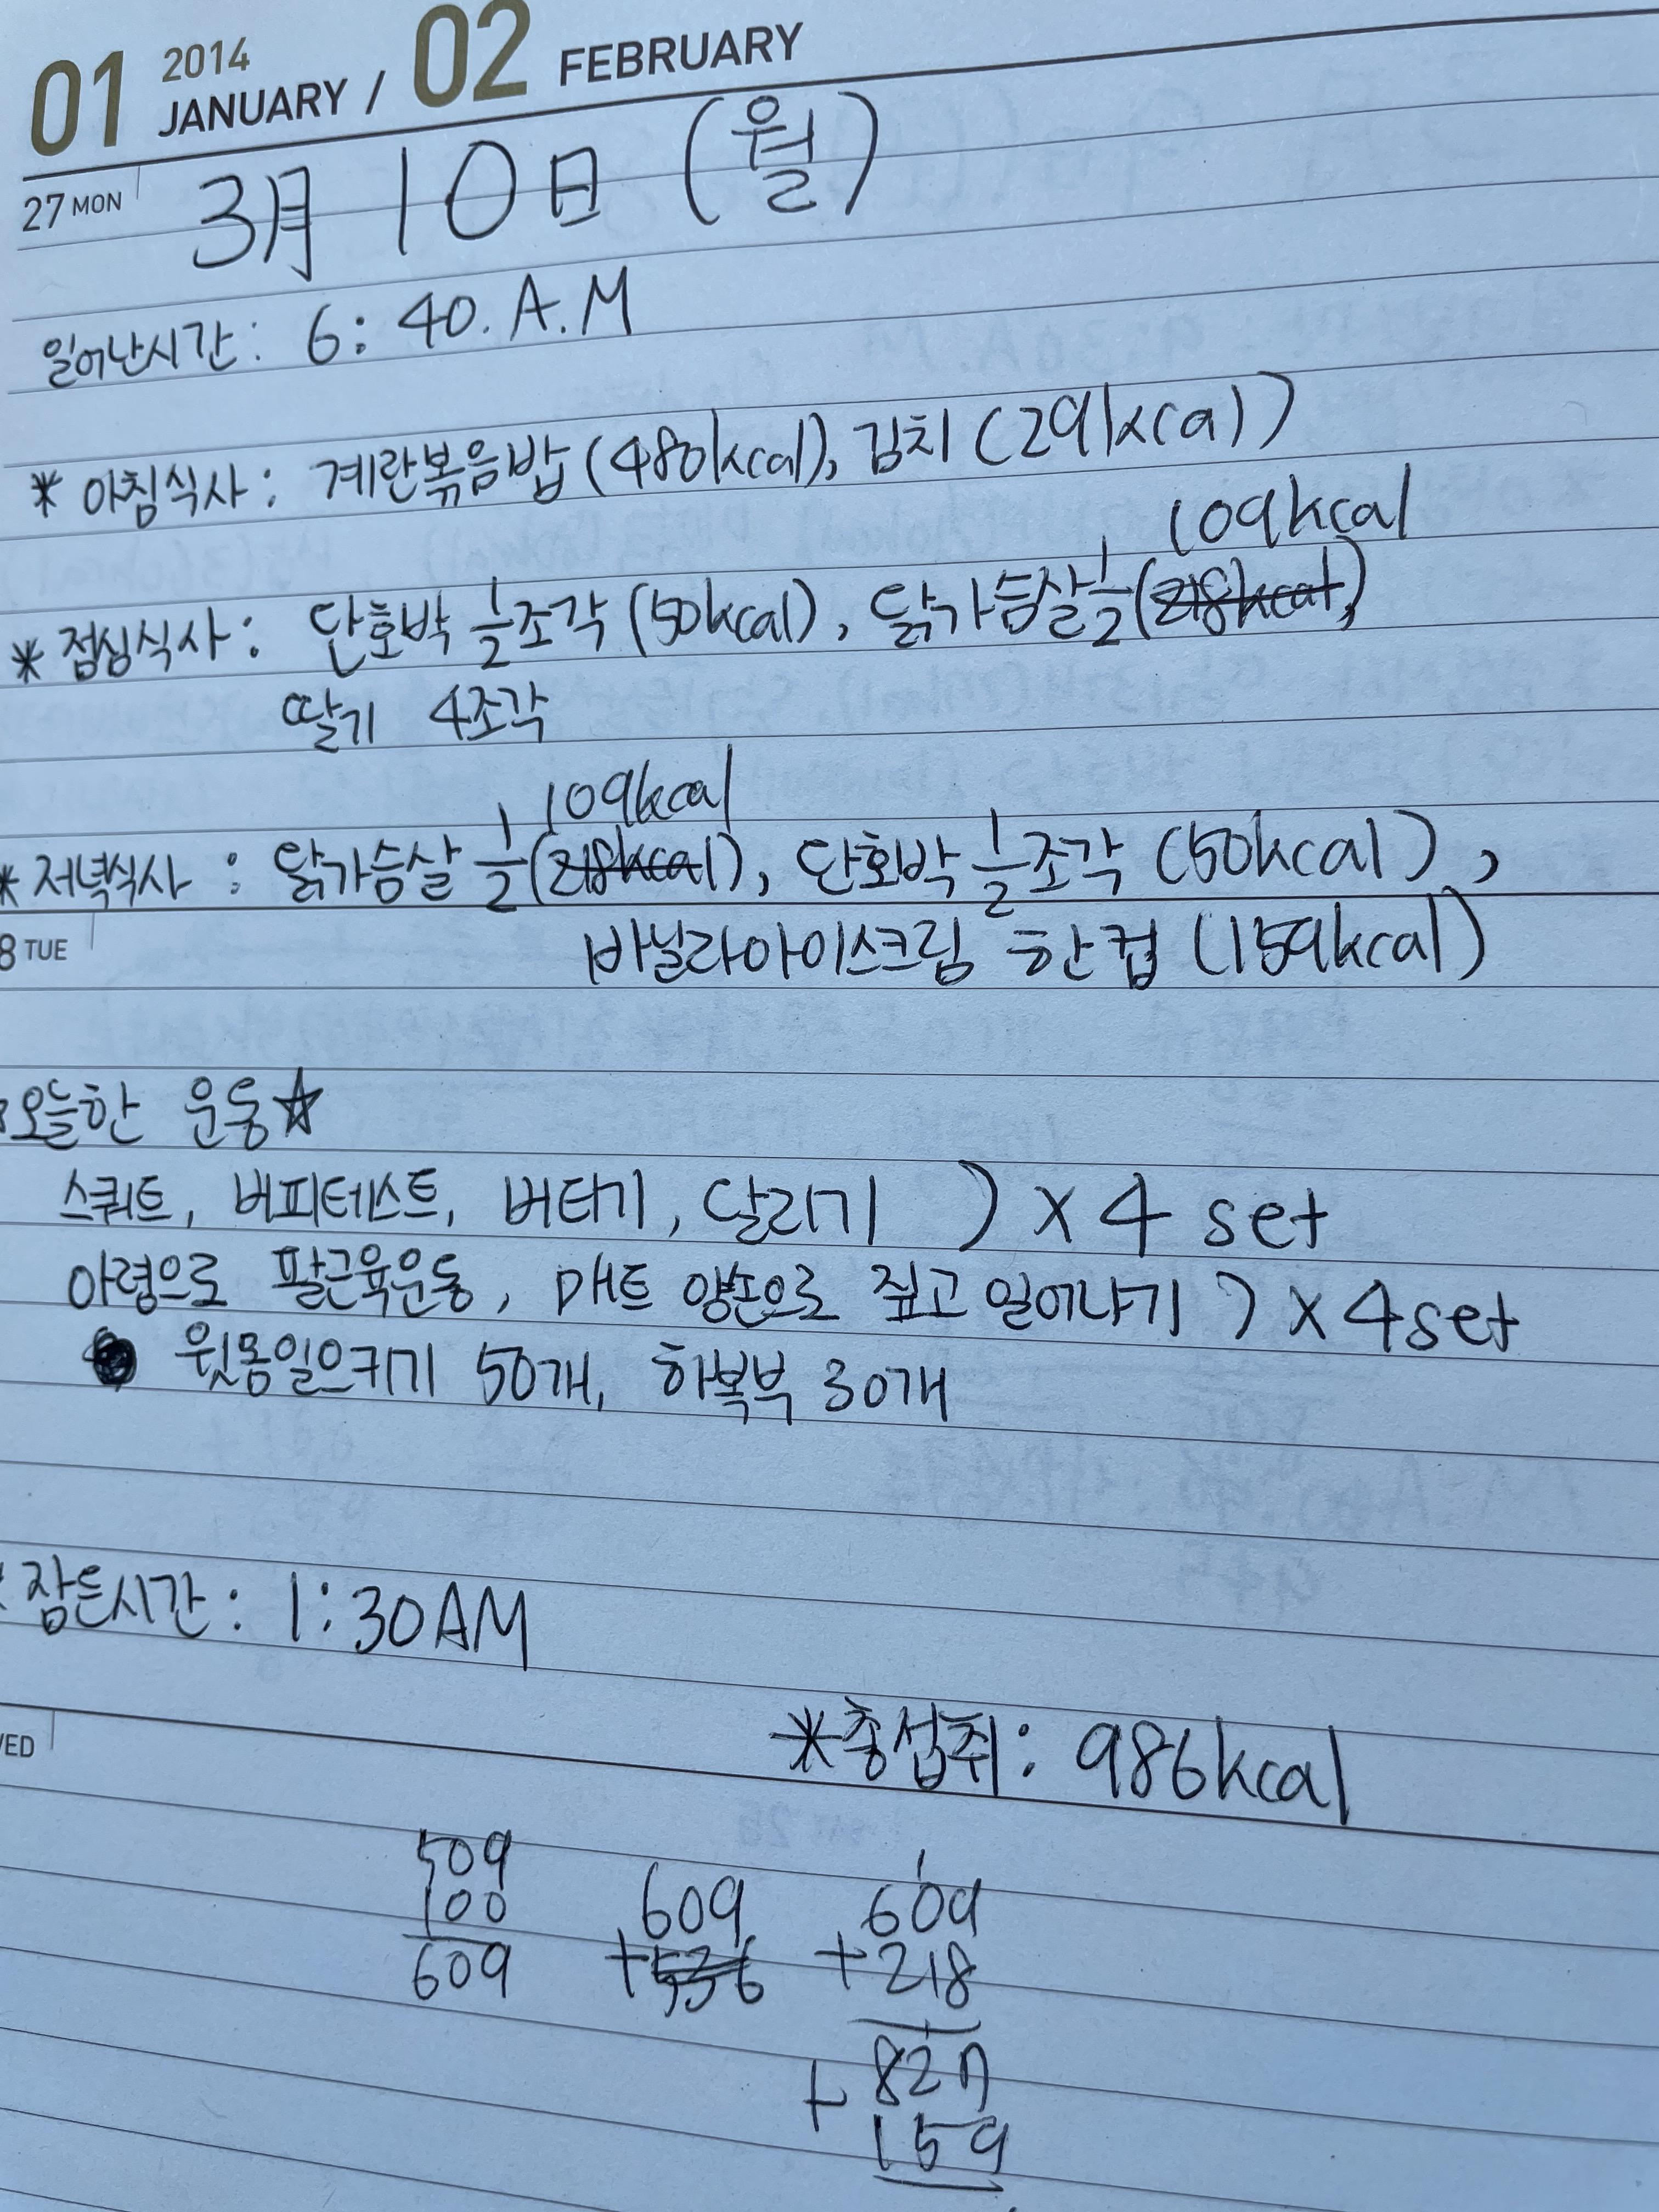 01 2014 JANUARY / 02 FEBRUARY
27 MON 3月 10日 (월)
일어난시간: 6:40.A.M
* 아침식사: 계란볶음밥(480kcal), 김치(29kcal)
109kcal
* 점심식사: 단호박 1/2조각(50kcal), 닭가슴살1/2(218kcal)
딸기 4조각
109kcal
* 저녁식사: 닭가슴살 1/2(218kcal), 단호박 1/2조각(50kcal),
8 TUE
바닐라아이스크림 한컵(159kcal)
오늘한 운동☆
스쿼트, 버피테스트, 버티기, 달리기 ) × 4 set
아령으로 팔근육운동, 매트 양손으로 짚고 일어나기 ) × 4set
윗몸일으키기 50개, 하복부 30개
잠든시간: 1:30AM
ED
*총섭취: 986kcal
509
100
609
609
+536
1
609
+218
827
+159